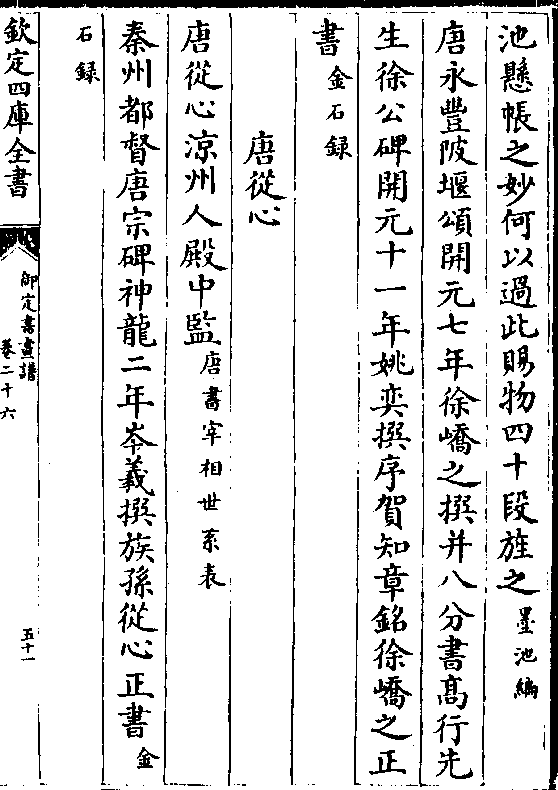 池懸帳之妙何以過此賜物四十段旌之墨池編
唐永豐陂堰頌開元七年徐嶠之撰并八分書髙行先
生徐公碑開元十一年姚奕撰序賀知章銘徐嶠之正
書金石録
唐從心
唐從心涼州人殿中監唐書宰相世系表
秦州都督唐宗碑神龍二年岑羲撰族孫從心正書金
石録
欽定四庫全書
御定書畫譜
卷二十六
五十一